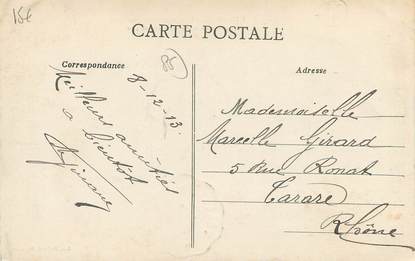 15€
CARTE POSTALE
Correspondance
Adresse
8-12-13.
Meilleures amitiés
à bientôt
Mademoiselle
Marcelle Girard
5 Rue Ronat
Tarare
Rhône